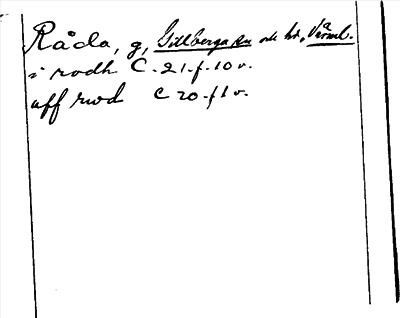 Råda, g, Gillberga sn och hd, Värml.
i rodh C. 21. f. 10 v.
aff rwd C 20. f 1 v.